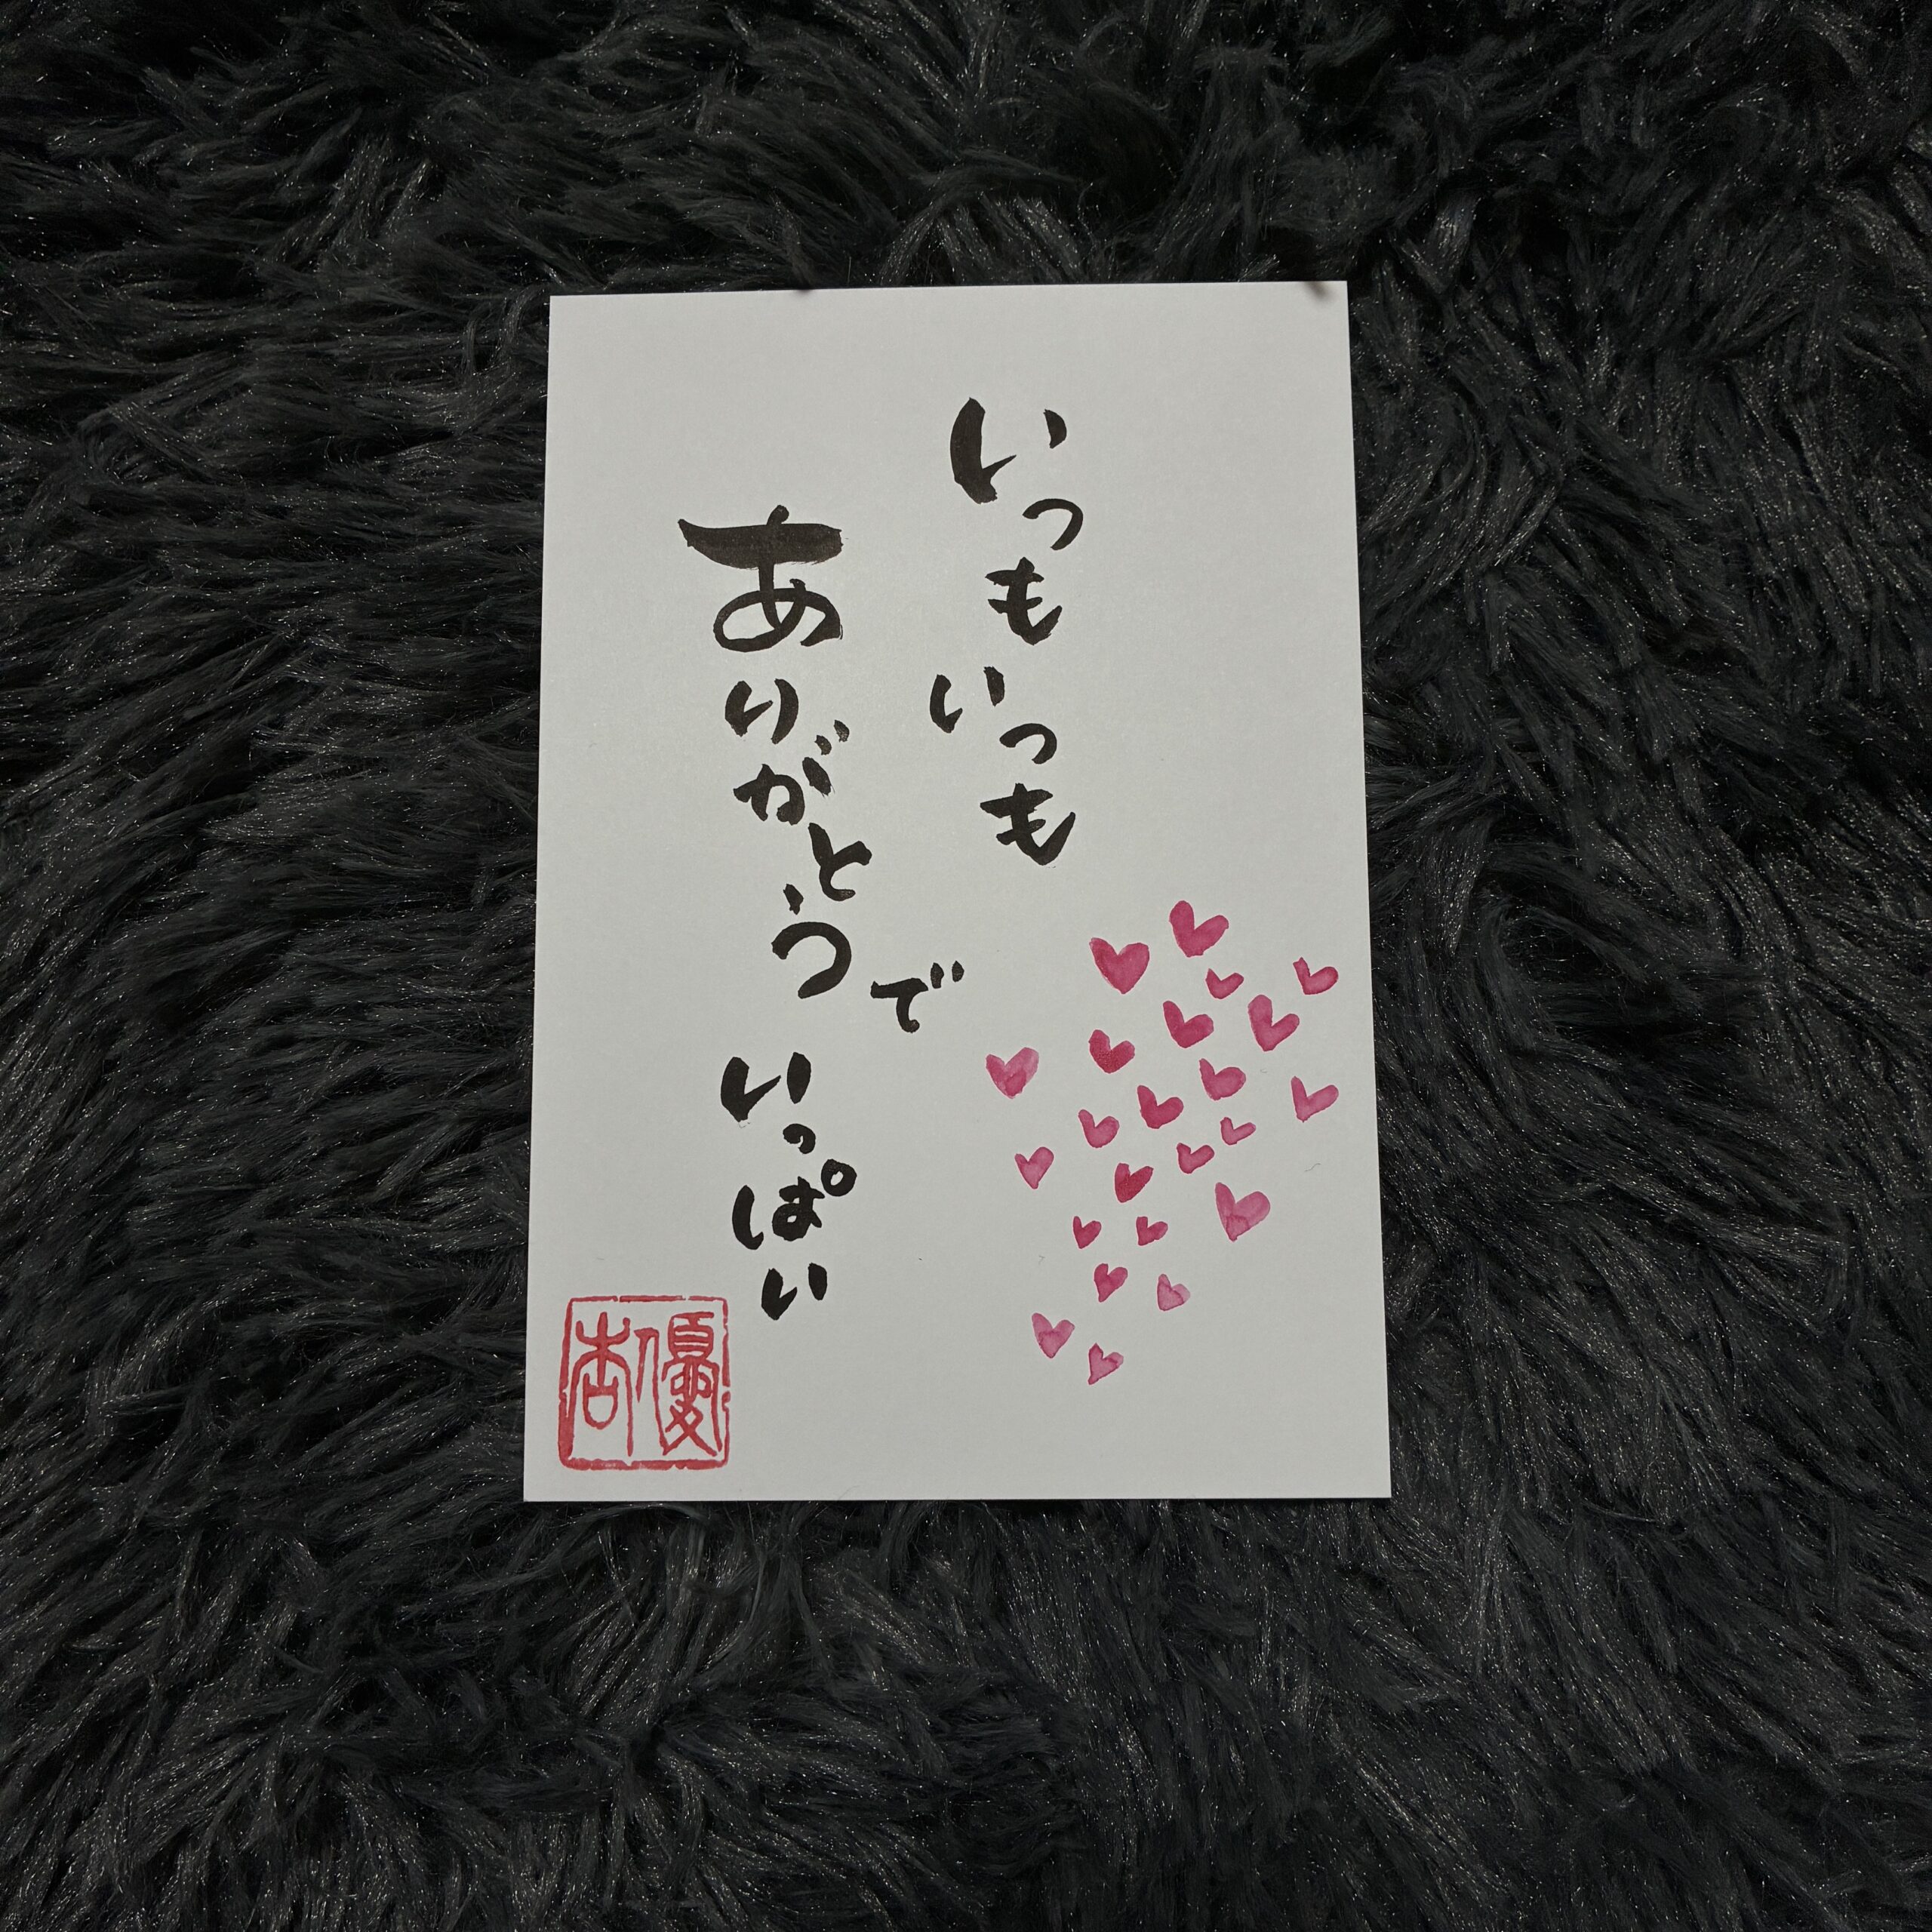 いつもいつも
ありがとうで
いっぱい
優杏